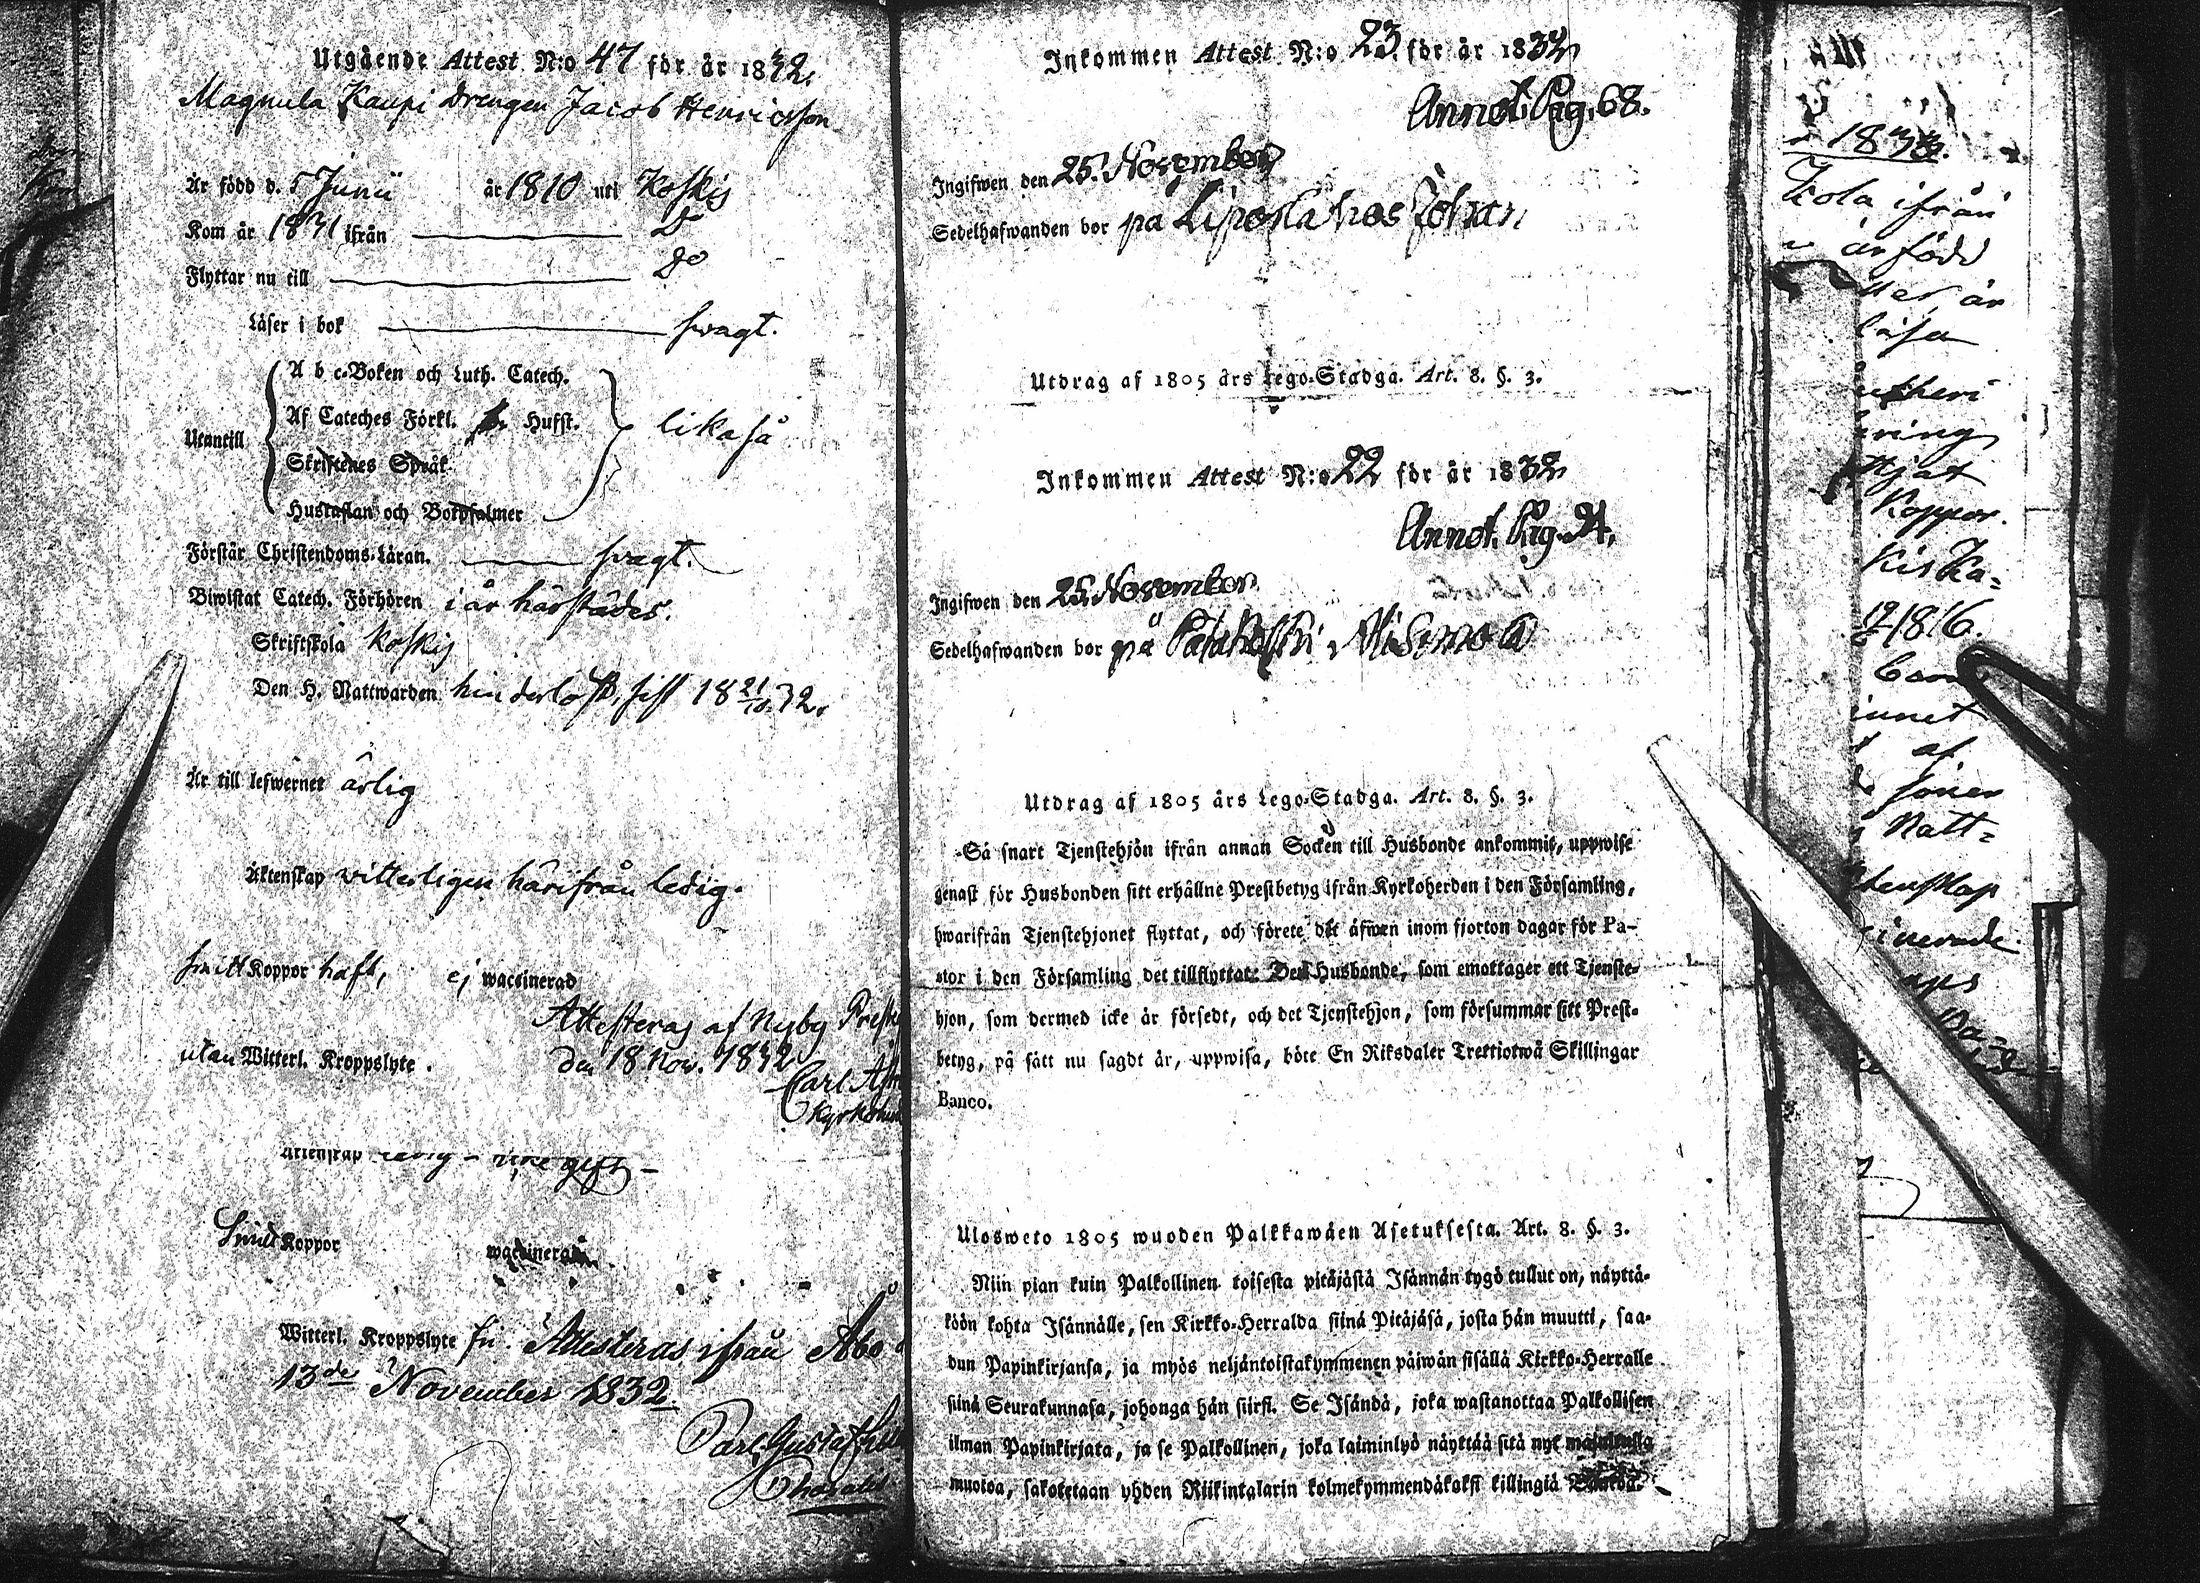 Utgående Attest N:o 47 för år 1832.
Magnula Kaupi Drengen Jacob Henricsson
Är född d. 5 Junii år 1810 uti Koskis
Kom år 1831 ifrån D:o
Flyttar nu till D:o
Läser i bok swagt.
A b c-Boken och Luth. Catech.
Af Cateches Förkl. Husst.
Utantill likaså
Skriftenes Språk
Hustaflan och Botpsalmer
Förstår Christendoms-Läran. swagt.
Biwistat Catech. Förhören i år härstädes.
Skriftskola Koskis
Den H. Nattwarden hinderlöst, sist 18 21/10 32.
Är till lefwernet ärlig
Äktenskap witterligen härifrån ledig.
Smitt Koppor haft, ej waccinerad
Attesteras af Nyby Prest
utan Witterl. Kroppslyte.
den 18 Nov. 1832
Carl
Kyrkoh
Äktenskap ledig –
Smitt Koppor waccinerad
Witterl. Kroppslyte fri. Attesteras ifrån Åbo d
13de November 1832
Carl Gustaf
Inkommen Attest N:o 23. för år 1832
Annot. Pag. 68.
Ingifwen den 25. November
Sedelhafwanden bor på Lipola hos Johan
Utdrag af 1805 års Lego-Stadga. Art. 8. §. 3.
Inkommen Attest N:o 22 för år 1832
Annot. Pag. 24.
Ingifwen den 25. November
Sedelhafwanden bor på
Utdrag af 1805 års Lego-Stadga. Art. 8. §. 3.
Så snart Tjenstehjön ifrån annan Socken till Husbonde ankommit, uppwise
genast för Husbonden sitt erhållne Prestbetyg ifrån Kyrkoherden i den Församling,
hwarifrån Tjenstehjonet flyttat, och förete det äfwen inom fjorton dagar för Pa-
stor i den Församling det tillflyttat: Den Husbonde, som emottager ett Tjenste-
hjon, som dermed icke är försedt, och det Tjenstehjon, som försummar sitt Prest-
betyg, på sätt nu sagdt är, uppwisa, böte En Riksdaler Trettiotwå Skillingar
Banco.
Ulosweto 1805 wuoden Palkkawäen Asetuksesta. Art. 8. §. 3.
Niin pian kuin Palkollinen toisesta pitäjästä Isännän tygö tullut on, näyttä-
köön kohta Isännälle, sen Kirkko-Herralda siinä Pitäjäsä, josta hän muutti, saa-
dun Papinkirjansa, ja myös neljäntoistakymmenen päiwän sisällä Kirkko-Herralle
siinä Seurakunnasa, johonga hän siirsi. Se Isändä, joka wastanottaa Palkollisen
ilman Papinkirjata, ja se Palkollinen, joka laiminlyö näyttää sitä nyt
muotoa, sakotetaan yhden Riikintalarin kolmekymmendäkaksi killingiä
1833.
ifrån
är född
är
läsa
Koppor.
Kiska-
1816.
af
Natt-